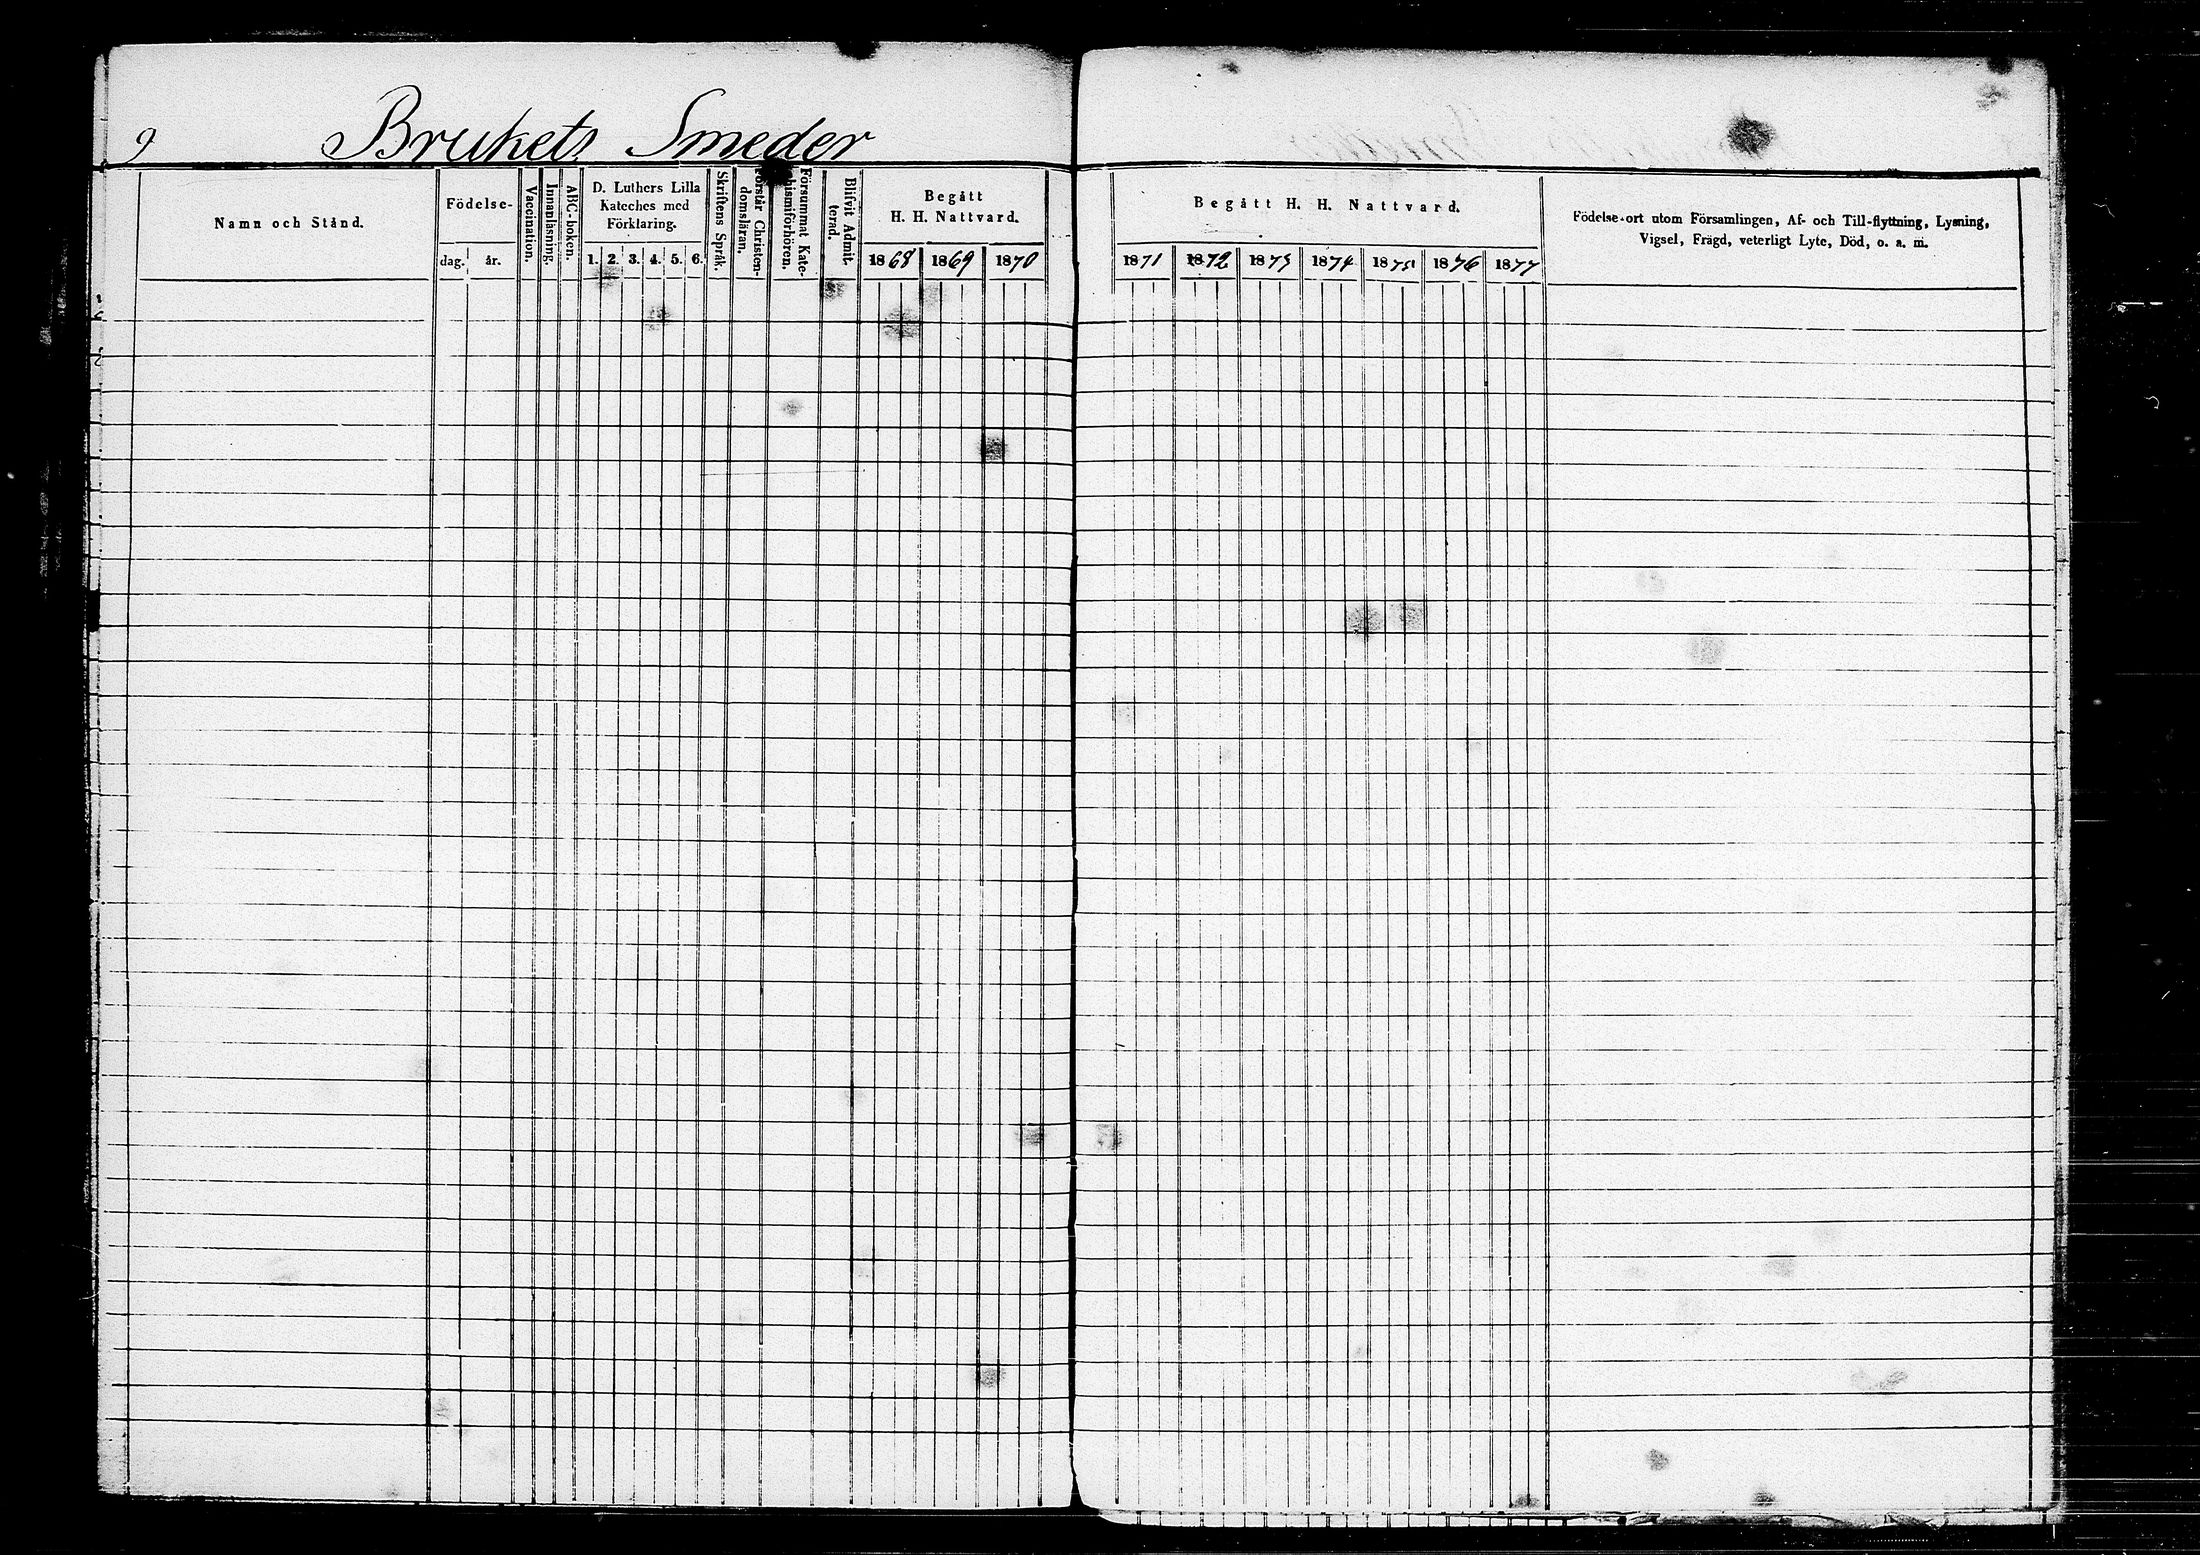 9 Brukets Smeder
Namn och Stånd.
Födelse-
dag. år.
Vaccination.
Innanläsning.
ABC-boken.
D. Luthers Lilla
Kateches med
Förklaring.
1. 2. 3. 4. 5. 6.
Skriftens Språk.
Förstår Christen-
domsläran.
Försummat Kate-
chismiförhören.
Blifvit Admit-
terad.
Begått
H. H. Nattvard.
1868 1869 1870
Begått H. H. Nattvard.
1871 1872 1873 1874 1875 1876 1877
Födelse-ort utom Församlingen, Af- och Till-flyttning, Lysning,
Vigsel, Frägd, veterligt Lyte, Död, o. s. m.